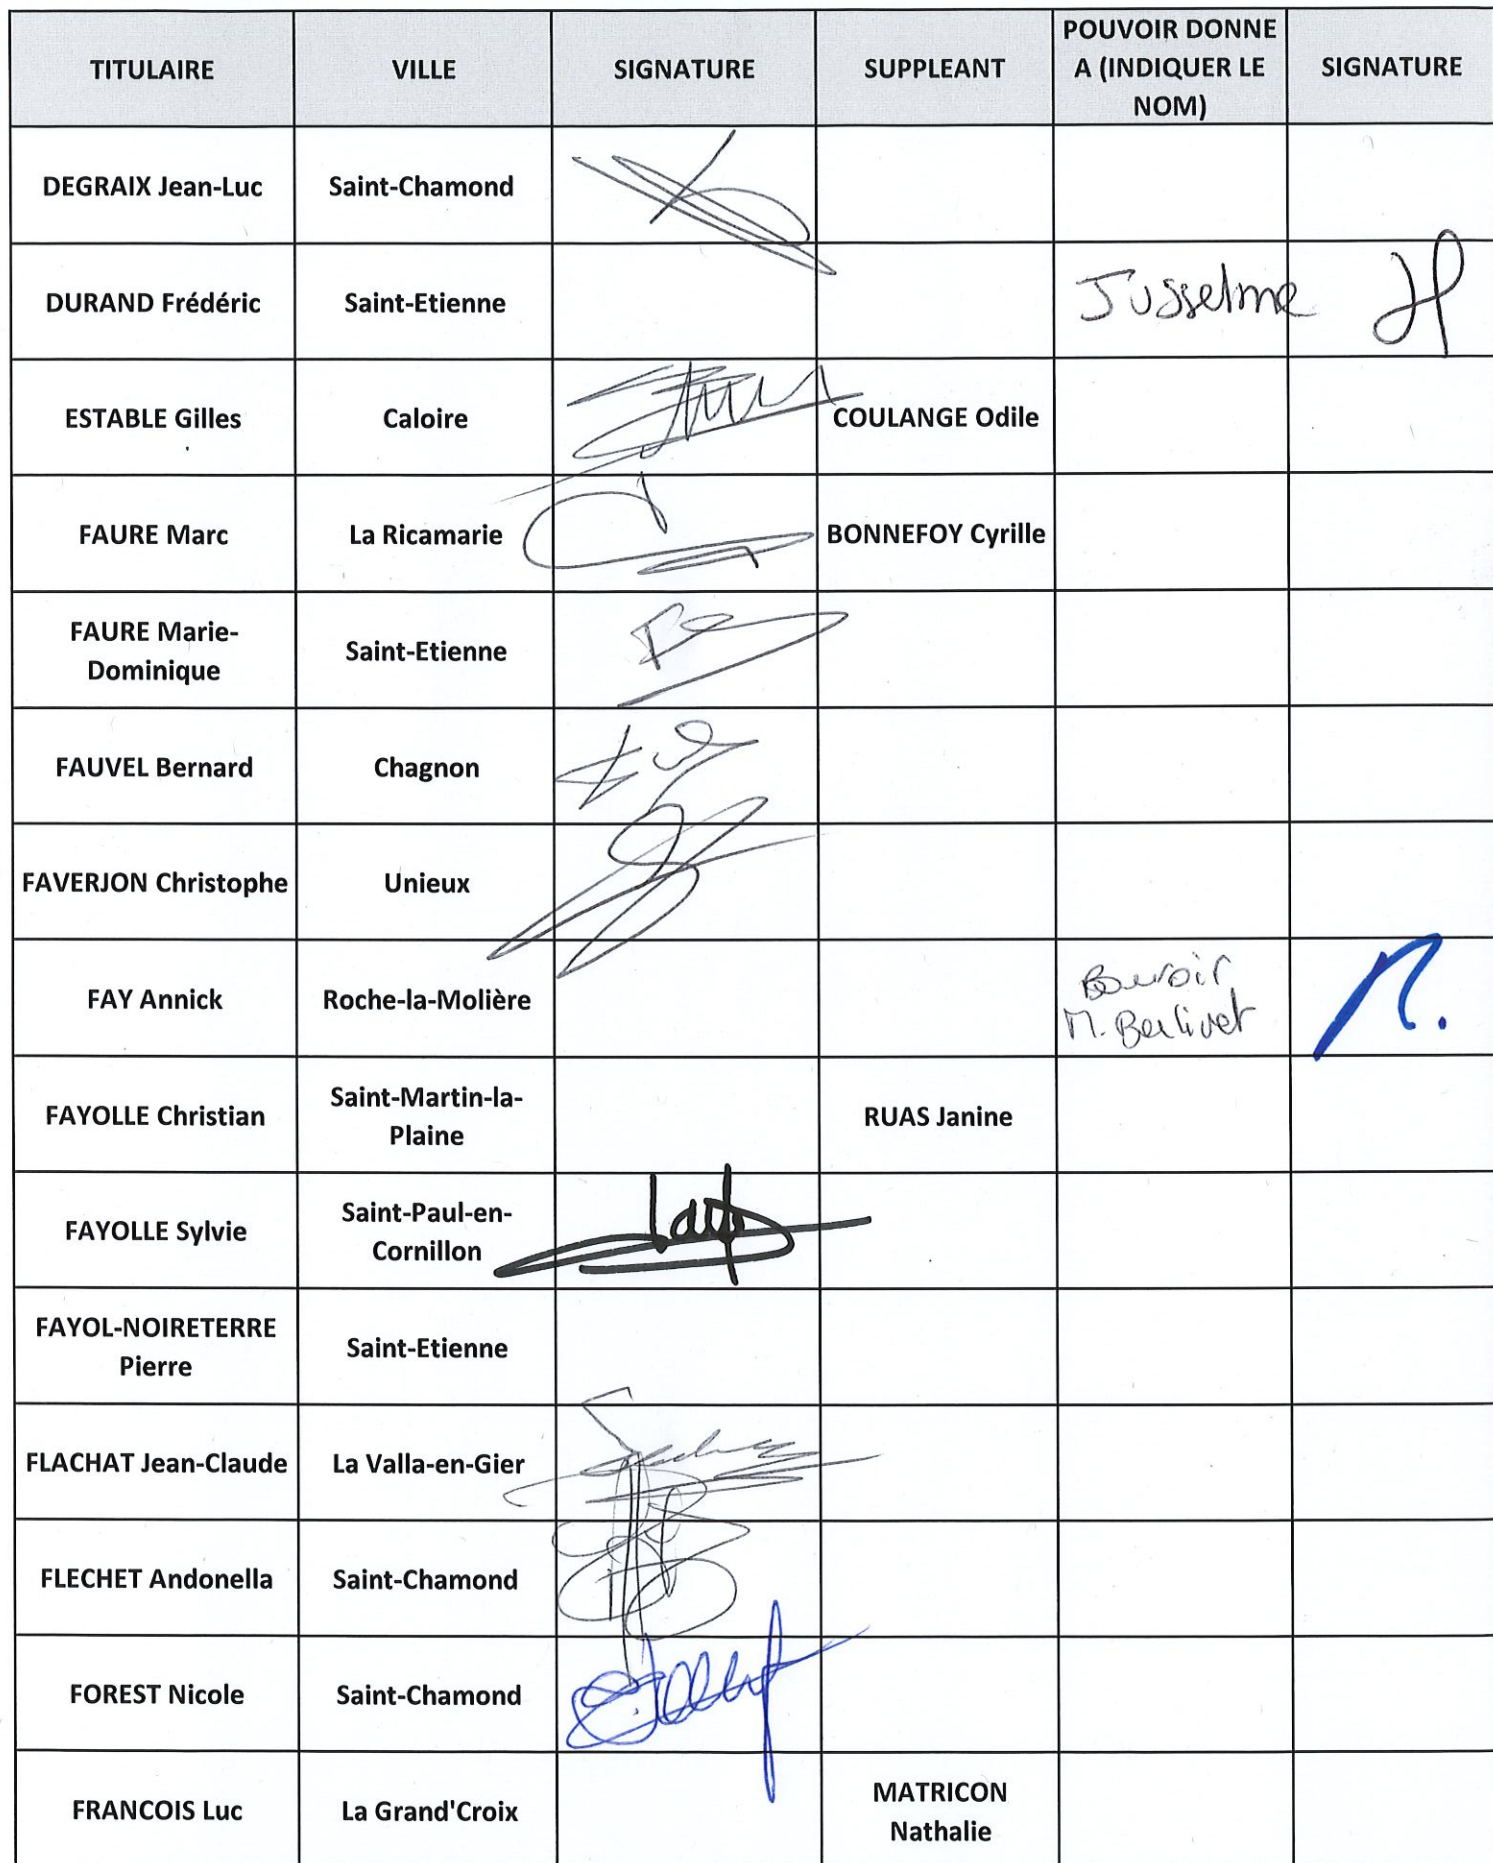 TITULAIRE
VILLE
SIGNATURE
SUPPLEANT
POUVOIR DONNE
A (INDIQUER LE
NOM)
SIGNATURE
DEGRAIX Jean-Luc
Saint-Chamond
DURAND Frédéric
Saint-Etienne
Jusselme
ESTABLE Gilles
Caloire
COULANGE Odile
FAURE Marc
La Ricamarie
BONNEFOY Cyrille
FAURE Marie-
Dominique
Saint-Etienne
FAUVEL Bernard
Chagnon
FAVERJON Christophe
Unieux
FAY Annick
Roche-la-Molière
Pouvoir
M. Berlivet
FAYOLLE Christian
Saint-Martin-la-
Plaine
RUAS Janine
FAYOLLE Sylvie
Saint-Paul-en-
Cornillon
FAYOL-NOIRETERRE
Pierre
Saint-Etienne
FLACHAT Jean-Claude
La Valla-en-Gier
FLECHET Andonella
Saint-Chamond
FOREST Nicole
Saint-Chamond
FRANCOIS Luc
La Grand'Croix
MATRICON
Nathalie